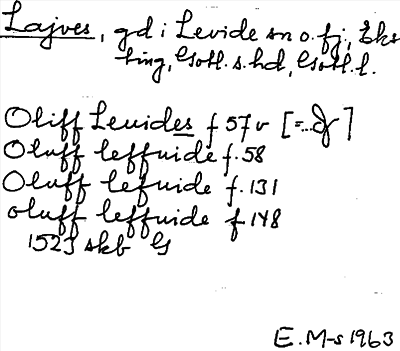 Lajves, gd i Levide sn o. fj., Eks
ting, Gotl. s. hd, Gotl. l.
Oliff Leuides f 57v [= ]
Oluff leffuide f. 58
Oluff lefuide f. 131
oluff leffuide f. 148
1523 skb G
E. M-s 1963